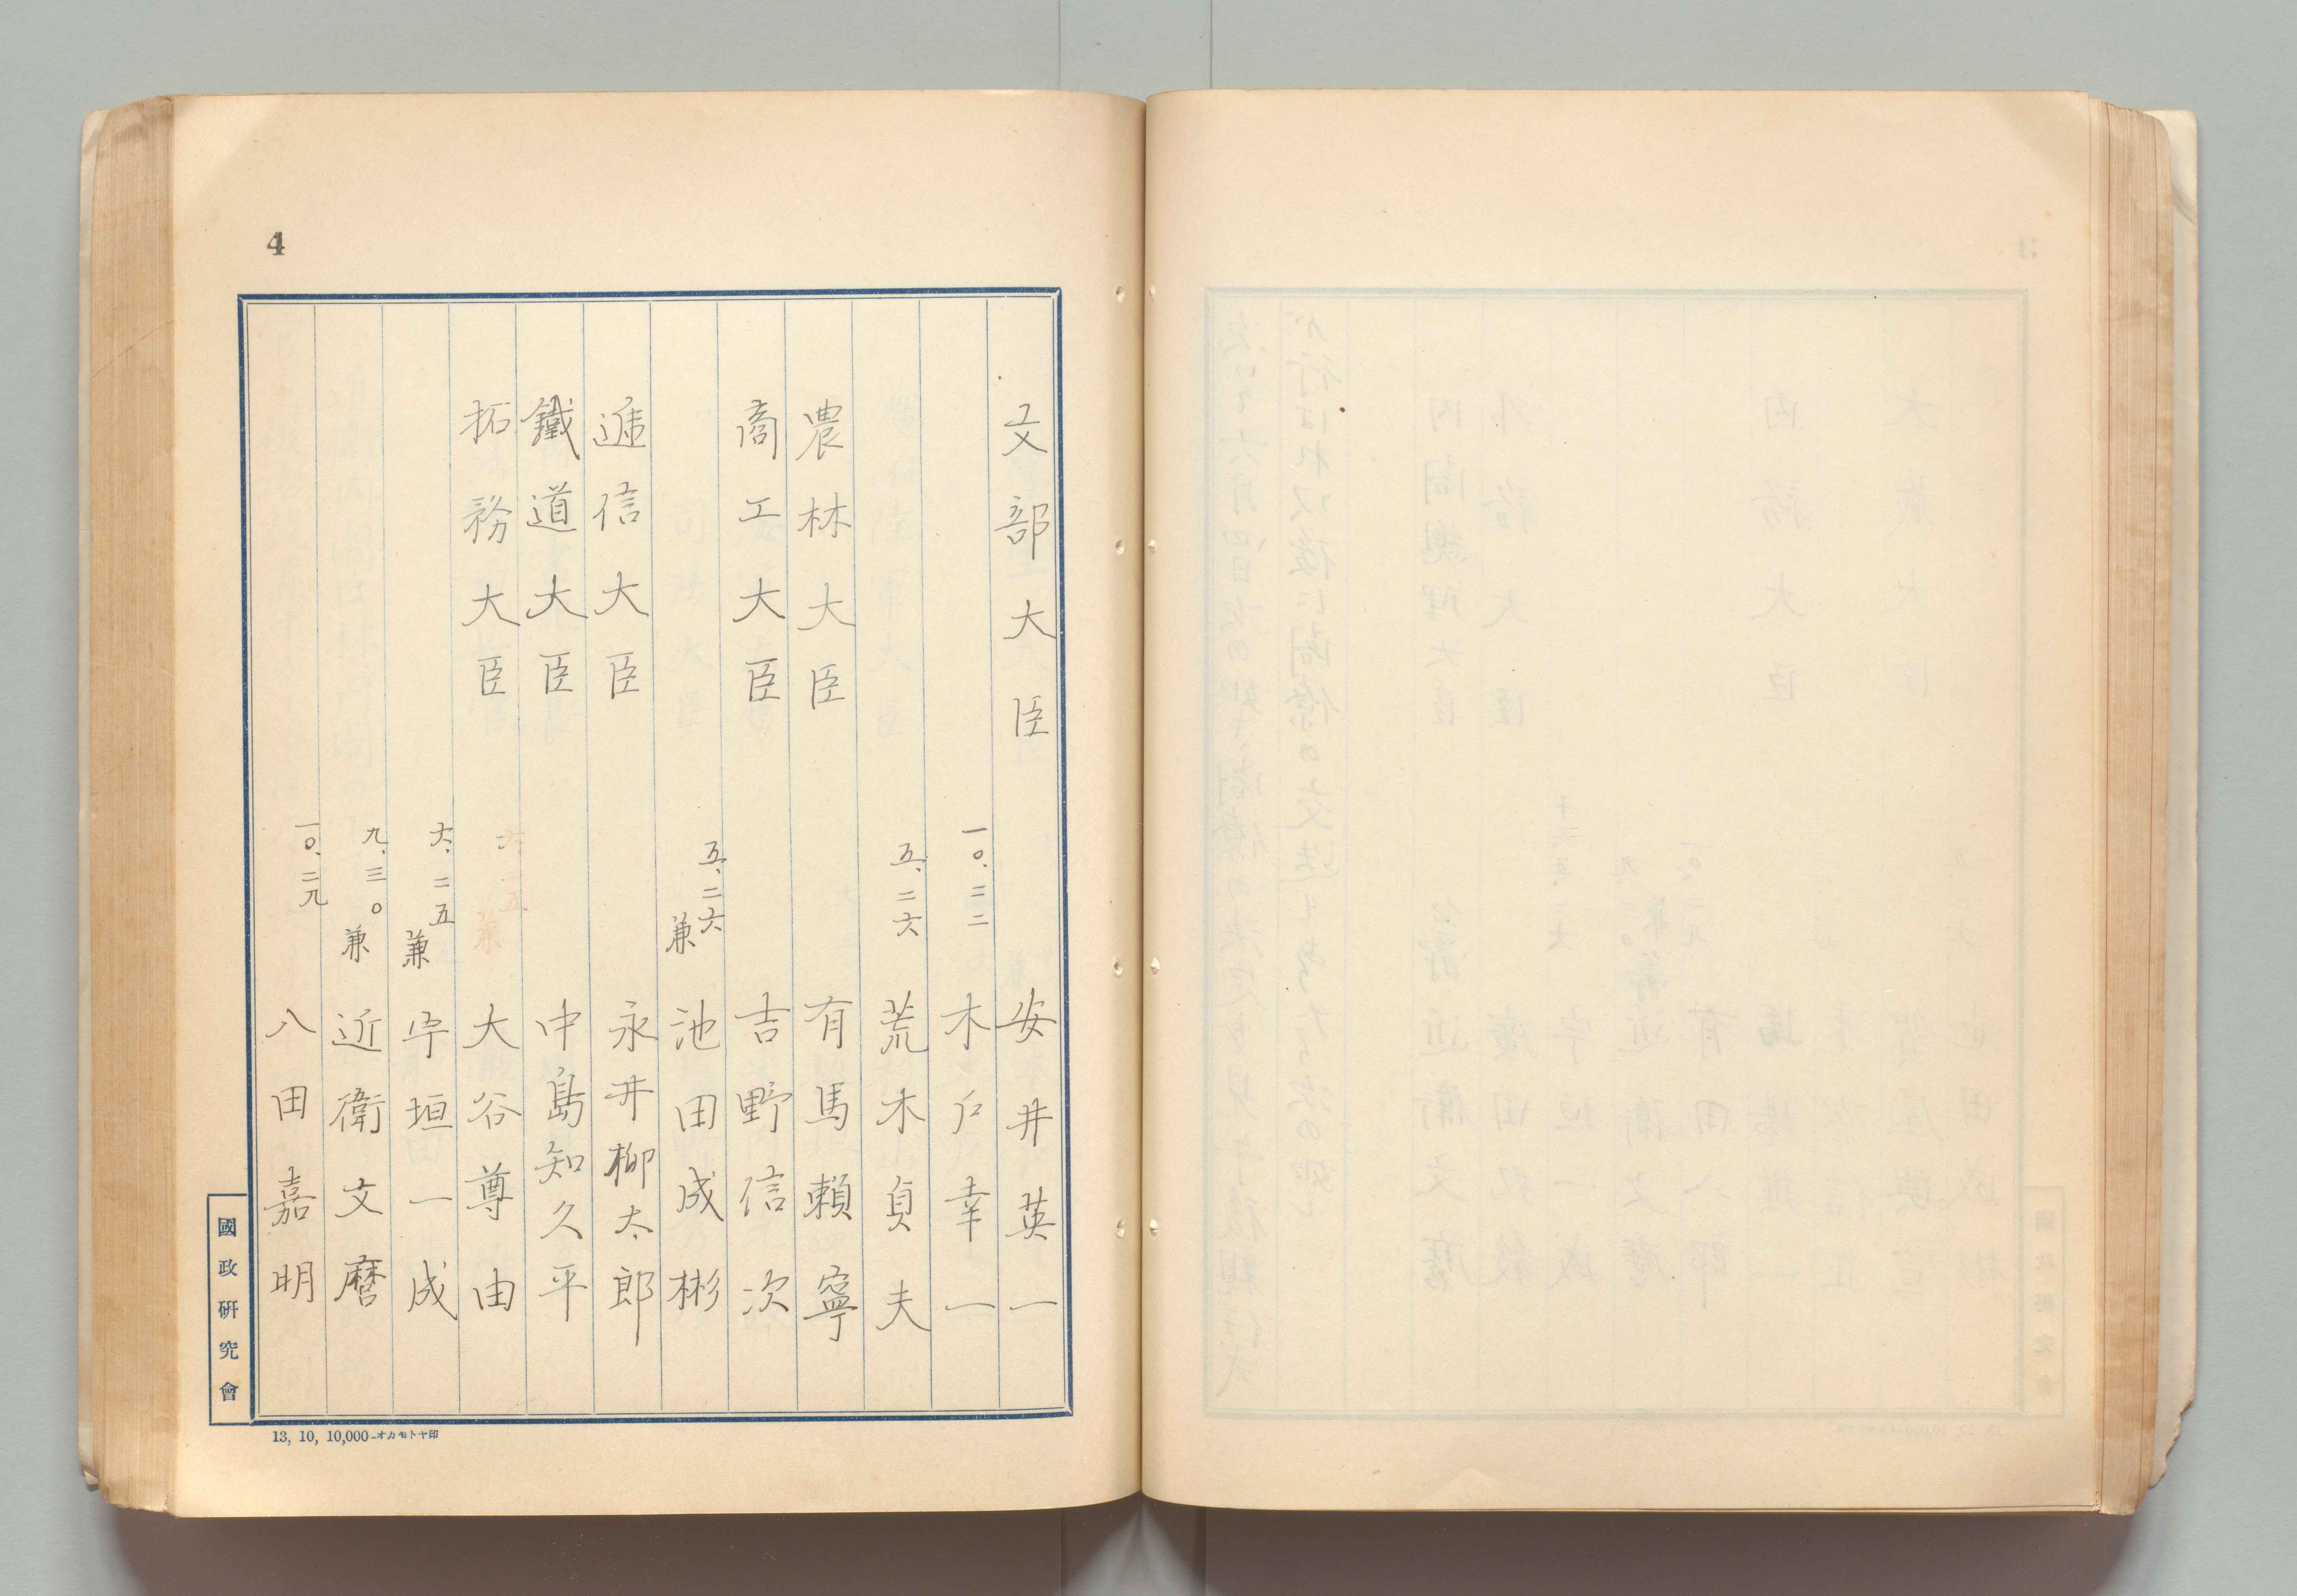 4
文部大臣 安井英一
一〇、二二 木戸幸一
五、二六 荒木貞夫
農林大臣 有馬頼寧
商工大臣 吉野信次
五、二六 兼 池田成彬
逓信大臣 永井柳太郎
鐵道大臣 中島知久平
拓務大臣 大谷尊由
六、二五 兼 宇垣一成
九、三〇 兼 近衛文麿
一〇、二九 八田嘉明
國政研究會
13, 10, 10,000-オカモトヤ印